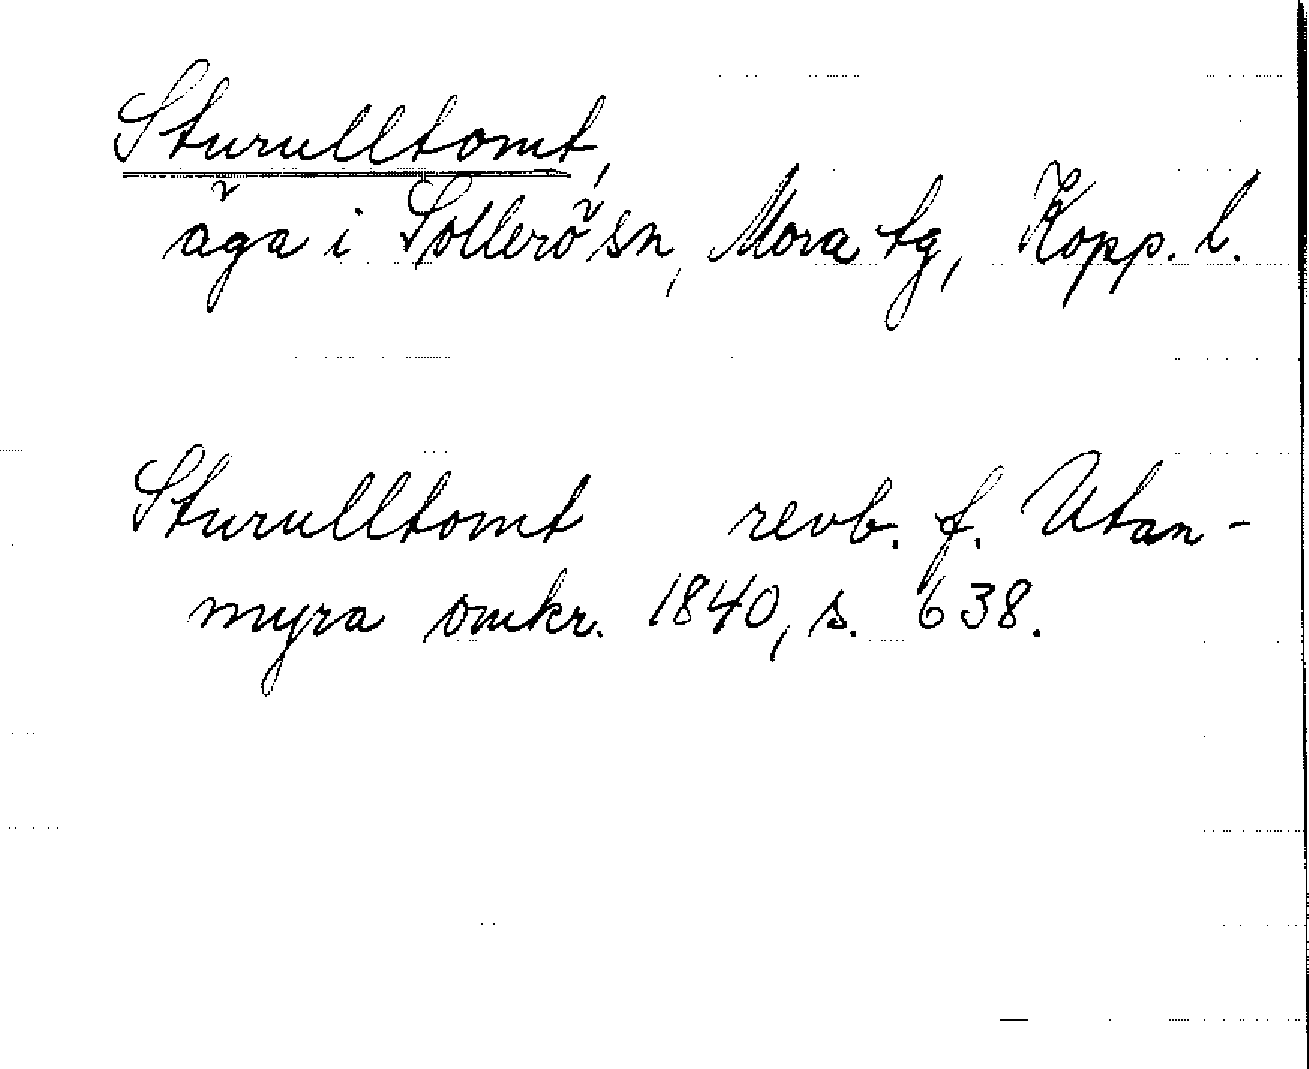 Sturulltomt,
äga i Sollerö sn, Mora tg, Kopp. l.
Sturulltomt revb. f. Utan-
myra omkr. 1840, s. 638.